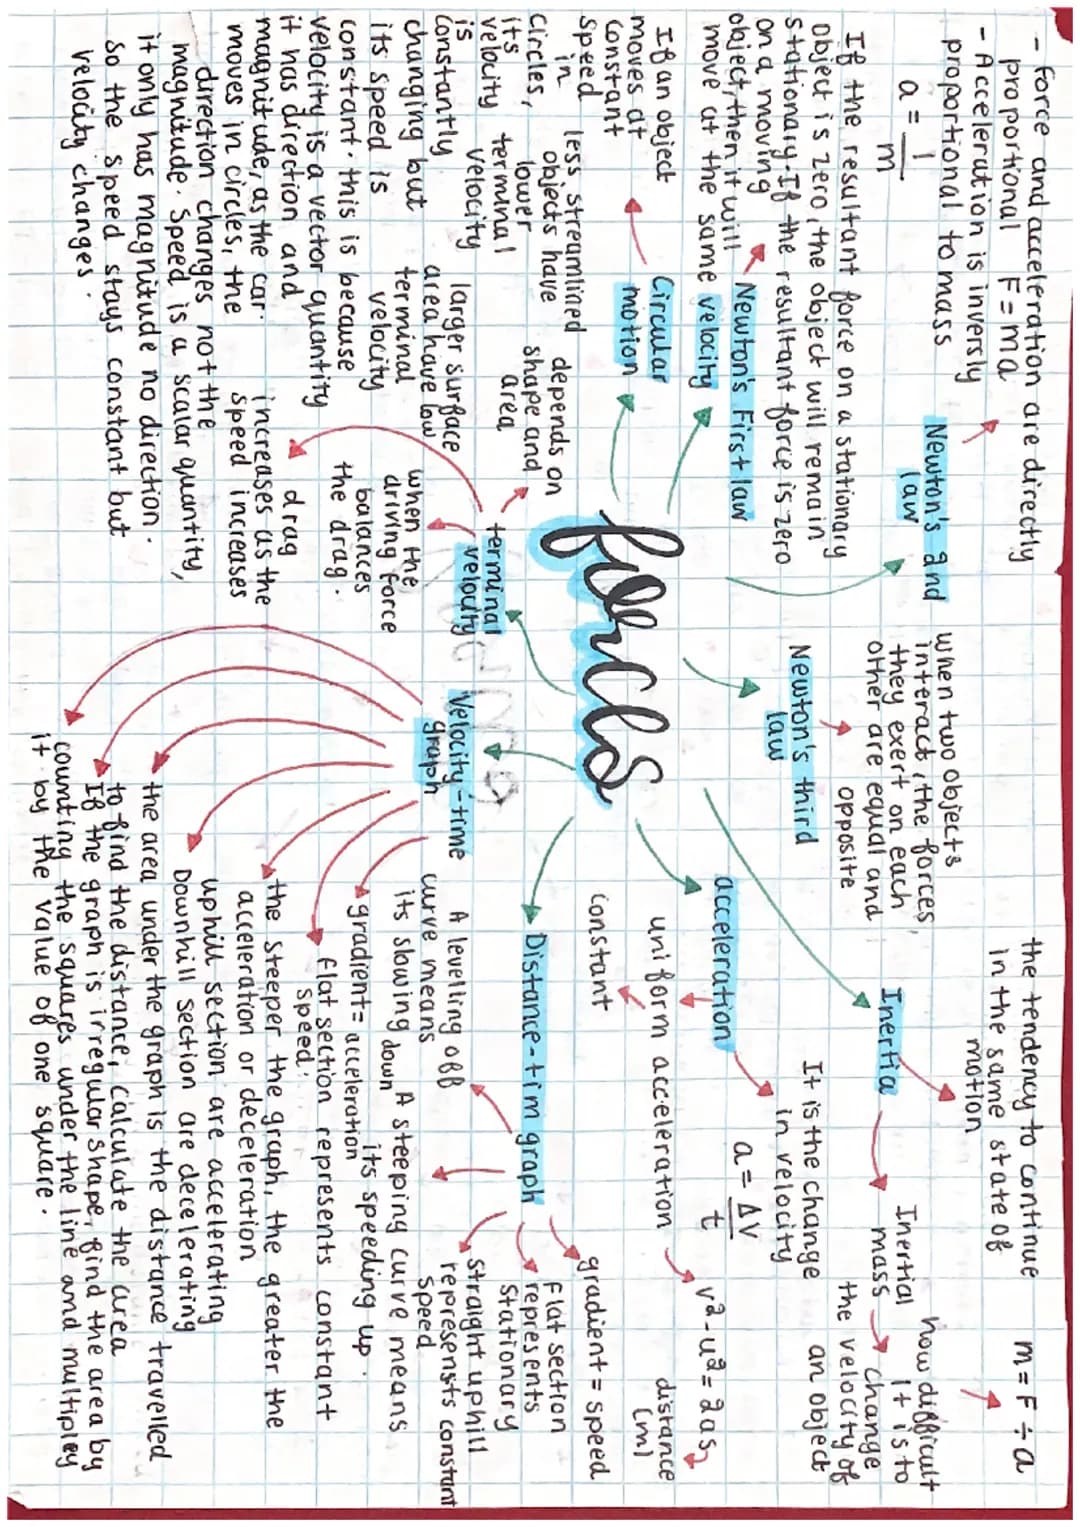 forces
- force and acceleration are directly
proportional F=ma
- Acceleration is inversly
proportional to mass
a = 1/m
Newton's 2nd
law
If the resultant force on a stationary
object is zero, the object will remain
stationary. If the resultant force is zero
on a moving
object, then it will
move at the same velocity
Newton's First law
Circular
motion
If an object
moves at
constant
speed
in
circles,
its
velocity
is
constantly
changing but
its speed is
constant. this is because
velocity is a vector quantity
it has direction and
magnitude, as the car
moves in circles, the
direction changes not the
magnitude. Speed is a scalar quantity,
it only has magnitude no direction.
so the speed stays constant but
velocity changes.
terminal
velocity
depends on
shape and
area
less streamlined
objects have
lower
terminal
velocity
larger surface
area have low
terminal
velocity
when the
driving force
balances
the drag.
drag
increases as the
speed increases
when two objects
interact, the forces
they exert on each
other are equal and
opposite
Newton's third
law
the tendency to continue
in the same state of
motion
Inertia
Inertial
mass
how difficult
it is to
change
the velocity of
an object
m = F ÷ a
acceleration
It is the change
in velocity
a = ΔV/t
uniform acceleration
constant
v²-u²=2as
distance
(m)
Distance-tim graph
gradient = speed
flat section
represents
stationary
straight uphill
represents constant
speed
A steeping curve means
its speeding up.
A levelling off
curve means
its slowing down
Velocity-time
graph
gradient = acceleration
flat section represents constant
speed.
the steeper the graph, the greater the
acceleration or deceleration
uphill section are accelerating
Downhill section are decelerating
the area under the graph is the distance travelled
to find the distance, calculate the area
If the graph is irregular shape, find the area by
counting the squares under the line and multipley
it by the value of one square.